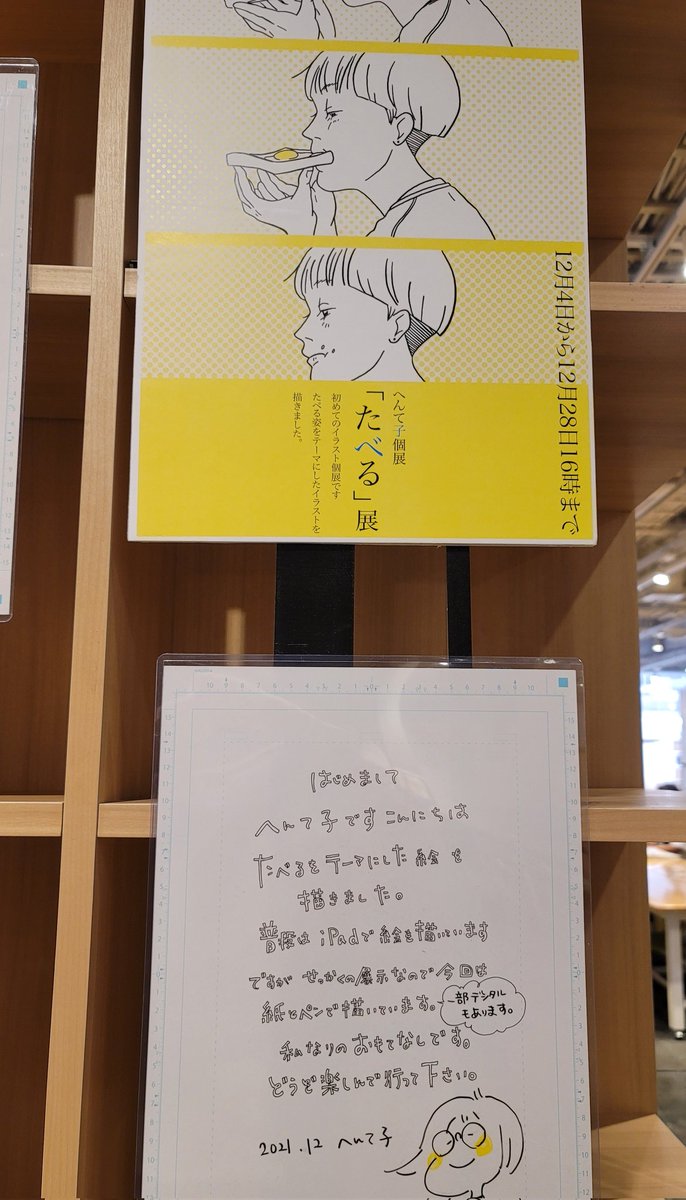 12月4日から12月28日16時まで
へんて子個展
「たべる」展
初めてのイラスト個展です
たべる姿をテーマにしたイラストを
描きました。
はじめまして
へんて子ですこんにちは
たべるをテーマにした絵を
描きました。
普段はiPadで絵を描いています
ですがせっかくの展示なので今回は
紙とペンで描いています。
一部デジタル
もあります。
私なりのおもてなしです。
どうぞ楽しんで行って下さい。
2021.12 へんて子